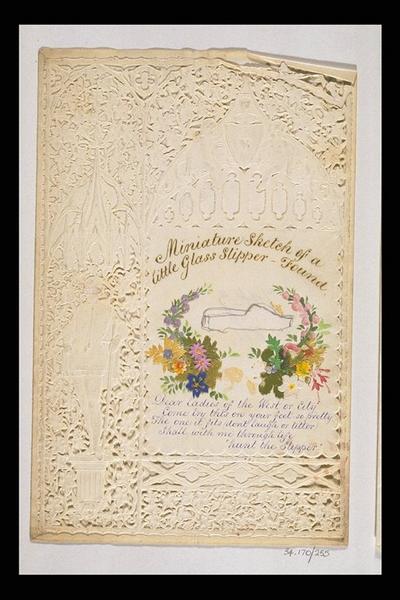 Miniature Sketch of a
little Glass Slipper - Found
Dear Ladies of the West, or City
Come try this on your feet so pretty
The one it fits dont laugh or titter
Shall with me through life
"hunt the Slipper"
34.170/255